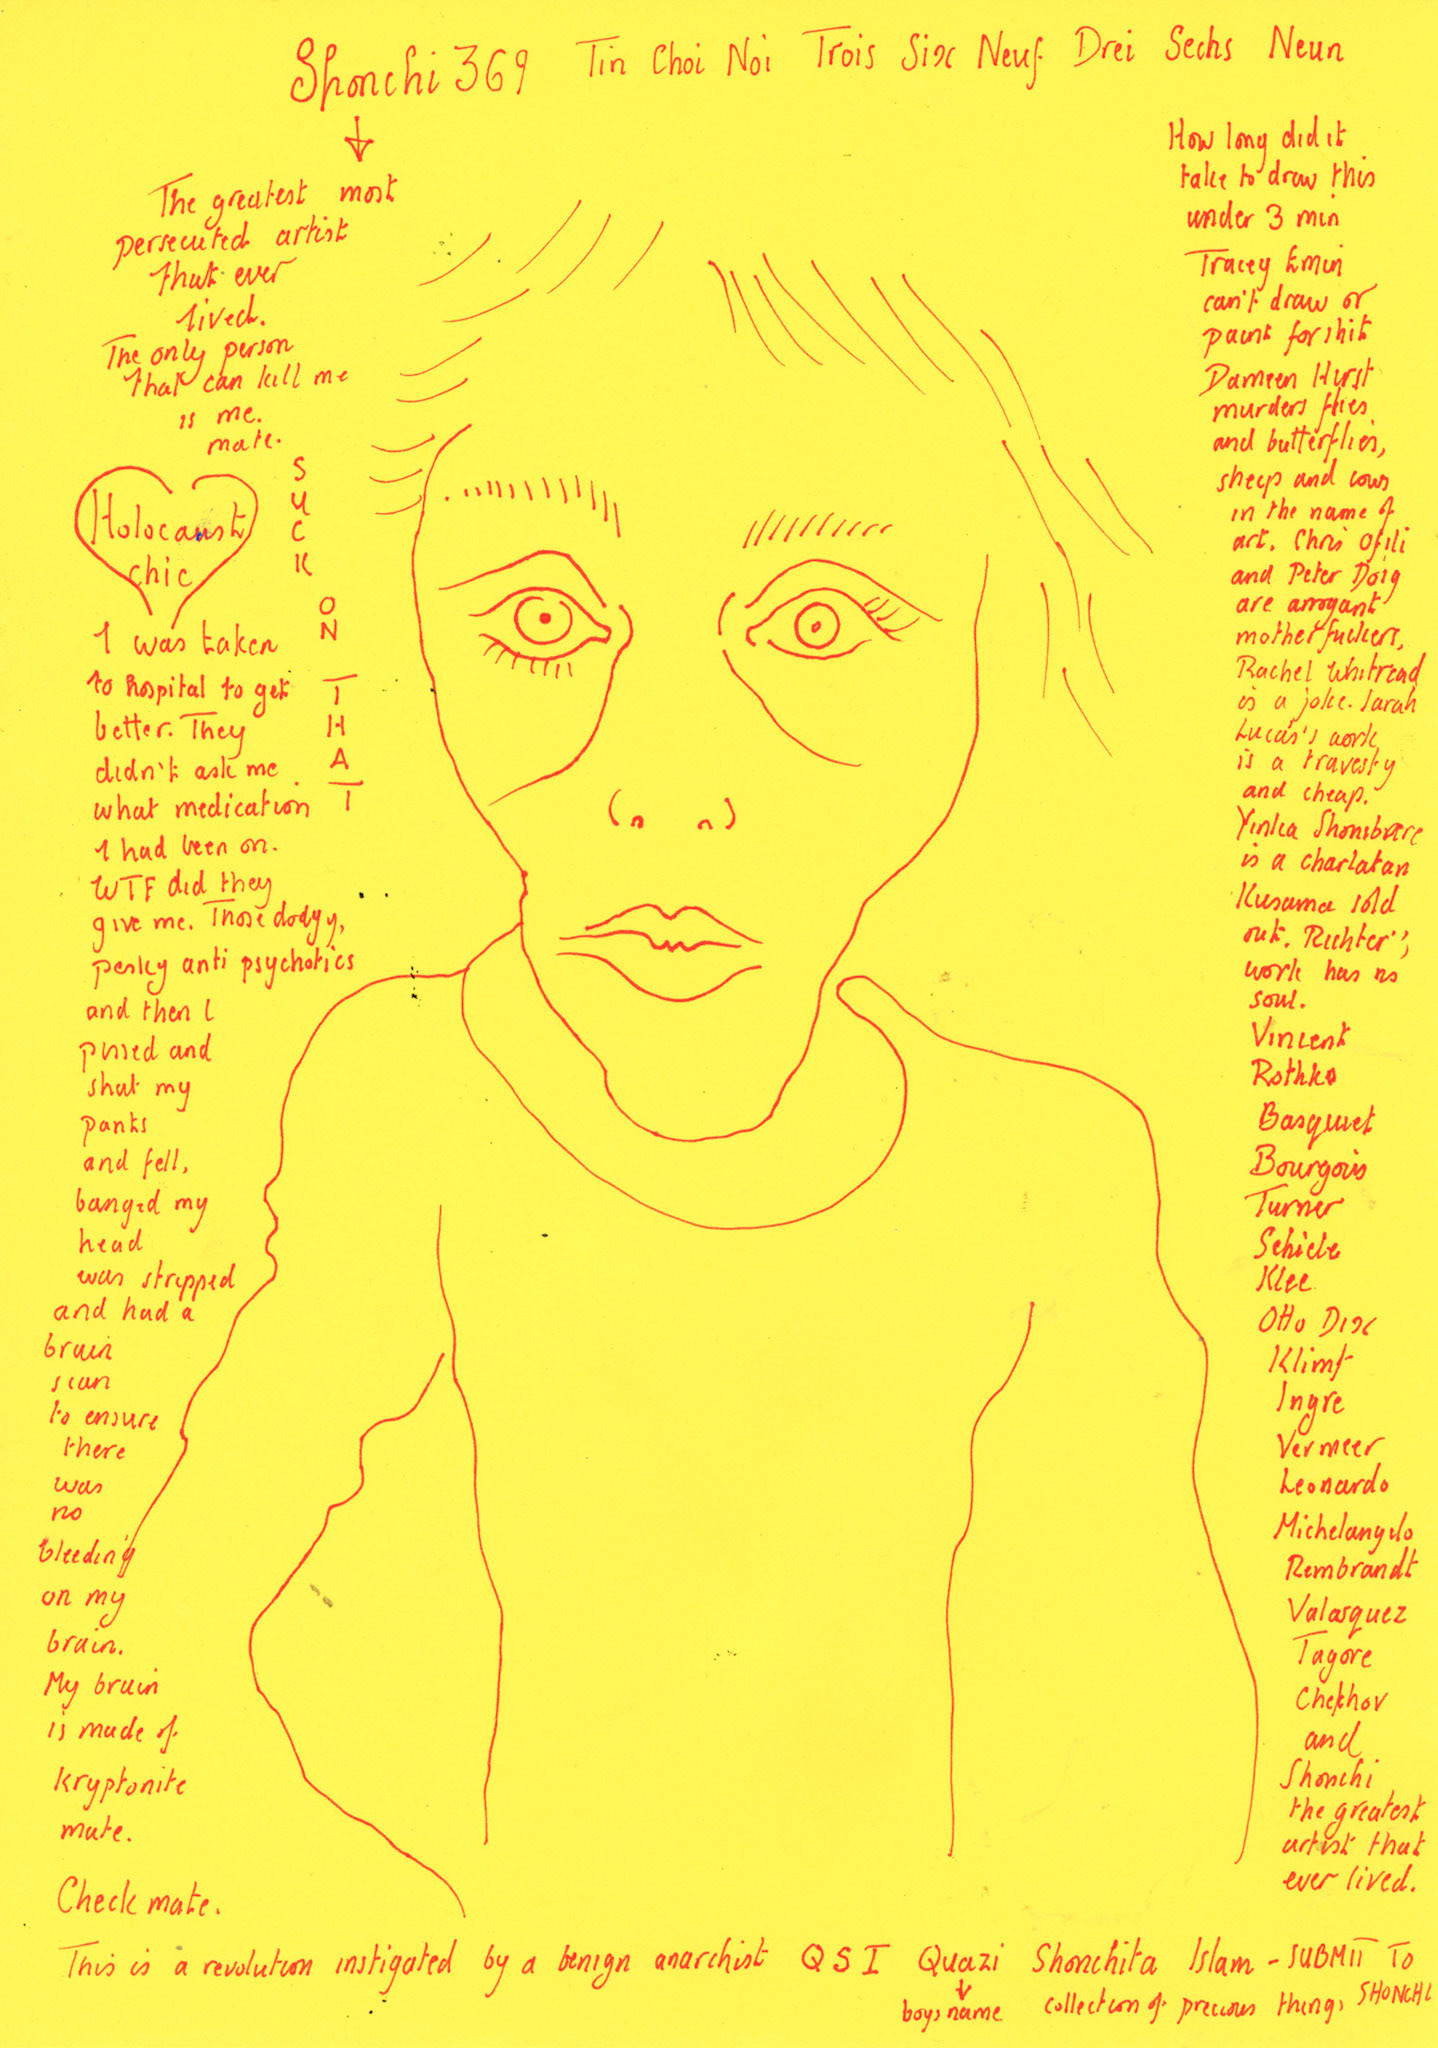 Shonchi 369 Tin Choi Noi Trois Six Neuf Drei Sechs Neun
The greatest most
persecuted artist
that ever
lived.
The only person
that can kill me
is me.
mate.
SUCK ON THAT
Holocaust
chic
I was taken
to hospital to get
better. They
didn't ask me
what medication
I had been on.
WTF did they
give me. Those dodgy,
pesky anti psychotics
and then I
pissed and
shat my
pants
and fell,
banged my
head
was stripped
and had a
brain
scan
to ensure
there
was
no
bleeding
on my
brain.
My brain
is made of
kryptonite
mate.
Check mate.
How long did it
take to draw this
under 3 min
Tracey Emin
can't draw or
paint for shit
Damien Hirst
murders flies
and butterflies,
sheep and cows
in the name of
art. Chris Ofili
and Peter Doig
are arrogant
motherfuckers,
Rachel Whitread
is a joke. Sarah
Lucas's work
is a travesty
and cheap.
Yinka Shonibare
is a charlatan
Kusama sold
out. Richter's
work has no
soul.
Vincent
Rothko
Basquiet
Bourgois
Turner
Schiele
Klee
Otto Dix
Klimt
Ingre
Vermeer
Leonardo
Michelangelo
Rembrandt
Valasquez
Tagore
Chekhov
and
Shonchi
the greatest
artist that
ever lived.
This is a revolution instigated by a benign anarchist QSI Quazi Shonchita Islam - SUBMIT TO
SHONCHI
boys name collection of precious things